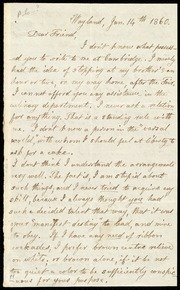 Wayland, Jan. 14th 1860.
Dear Friend,
I don't know what possess-
ed you to write to me at Cambridge. I merely
had the idea of stopping at my brother's an
hour or two, on my way home after the Fair.
I cannot afford you any assistance in the
culinary department. I never ask a relation
for anything. That is a standing rule with
me. I don't know a person in the
world, with whom I should feel at liberty to
ask for a cake.
I don't think I understand the arrangements
very well. The fact is, I am stupid about
such things, and I never tried to acquire any
skill, because I always thought you had
such a decided talent that way, that it was
your "manifest destiny" to lead, and mine
to obey. If I have any need of ribbon
I prefer brown centre
on white, or brown alone, if it be not
too quiet a color to be sufficiently conspic-
uous for your purpose.